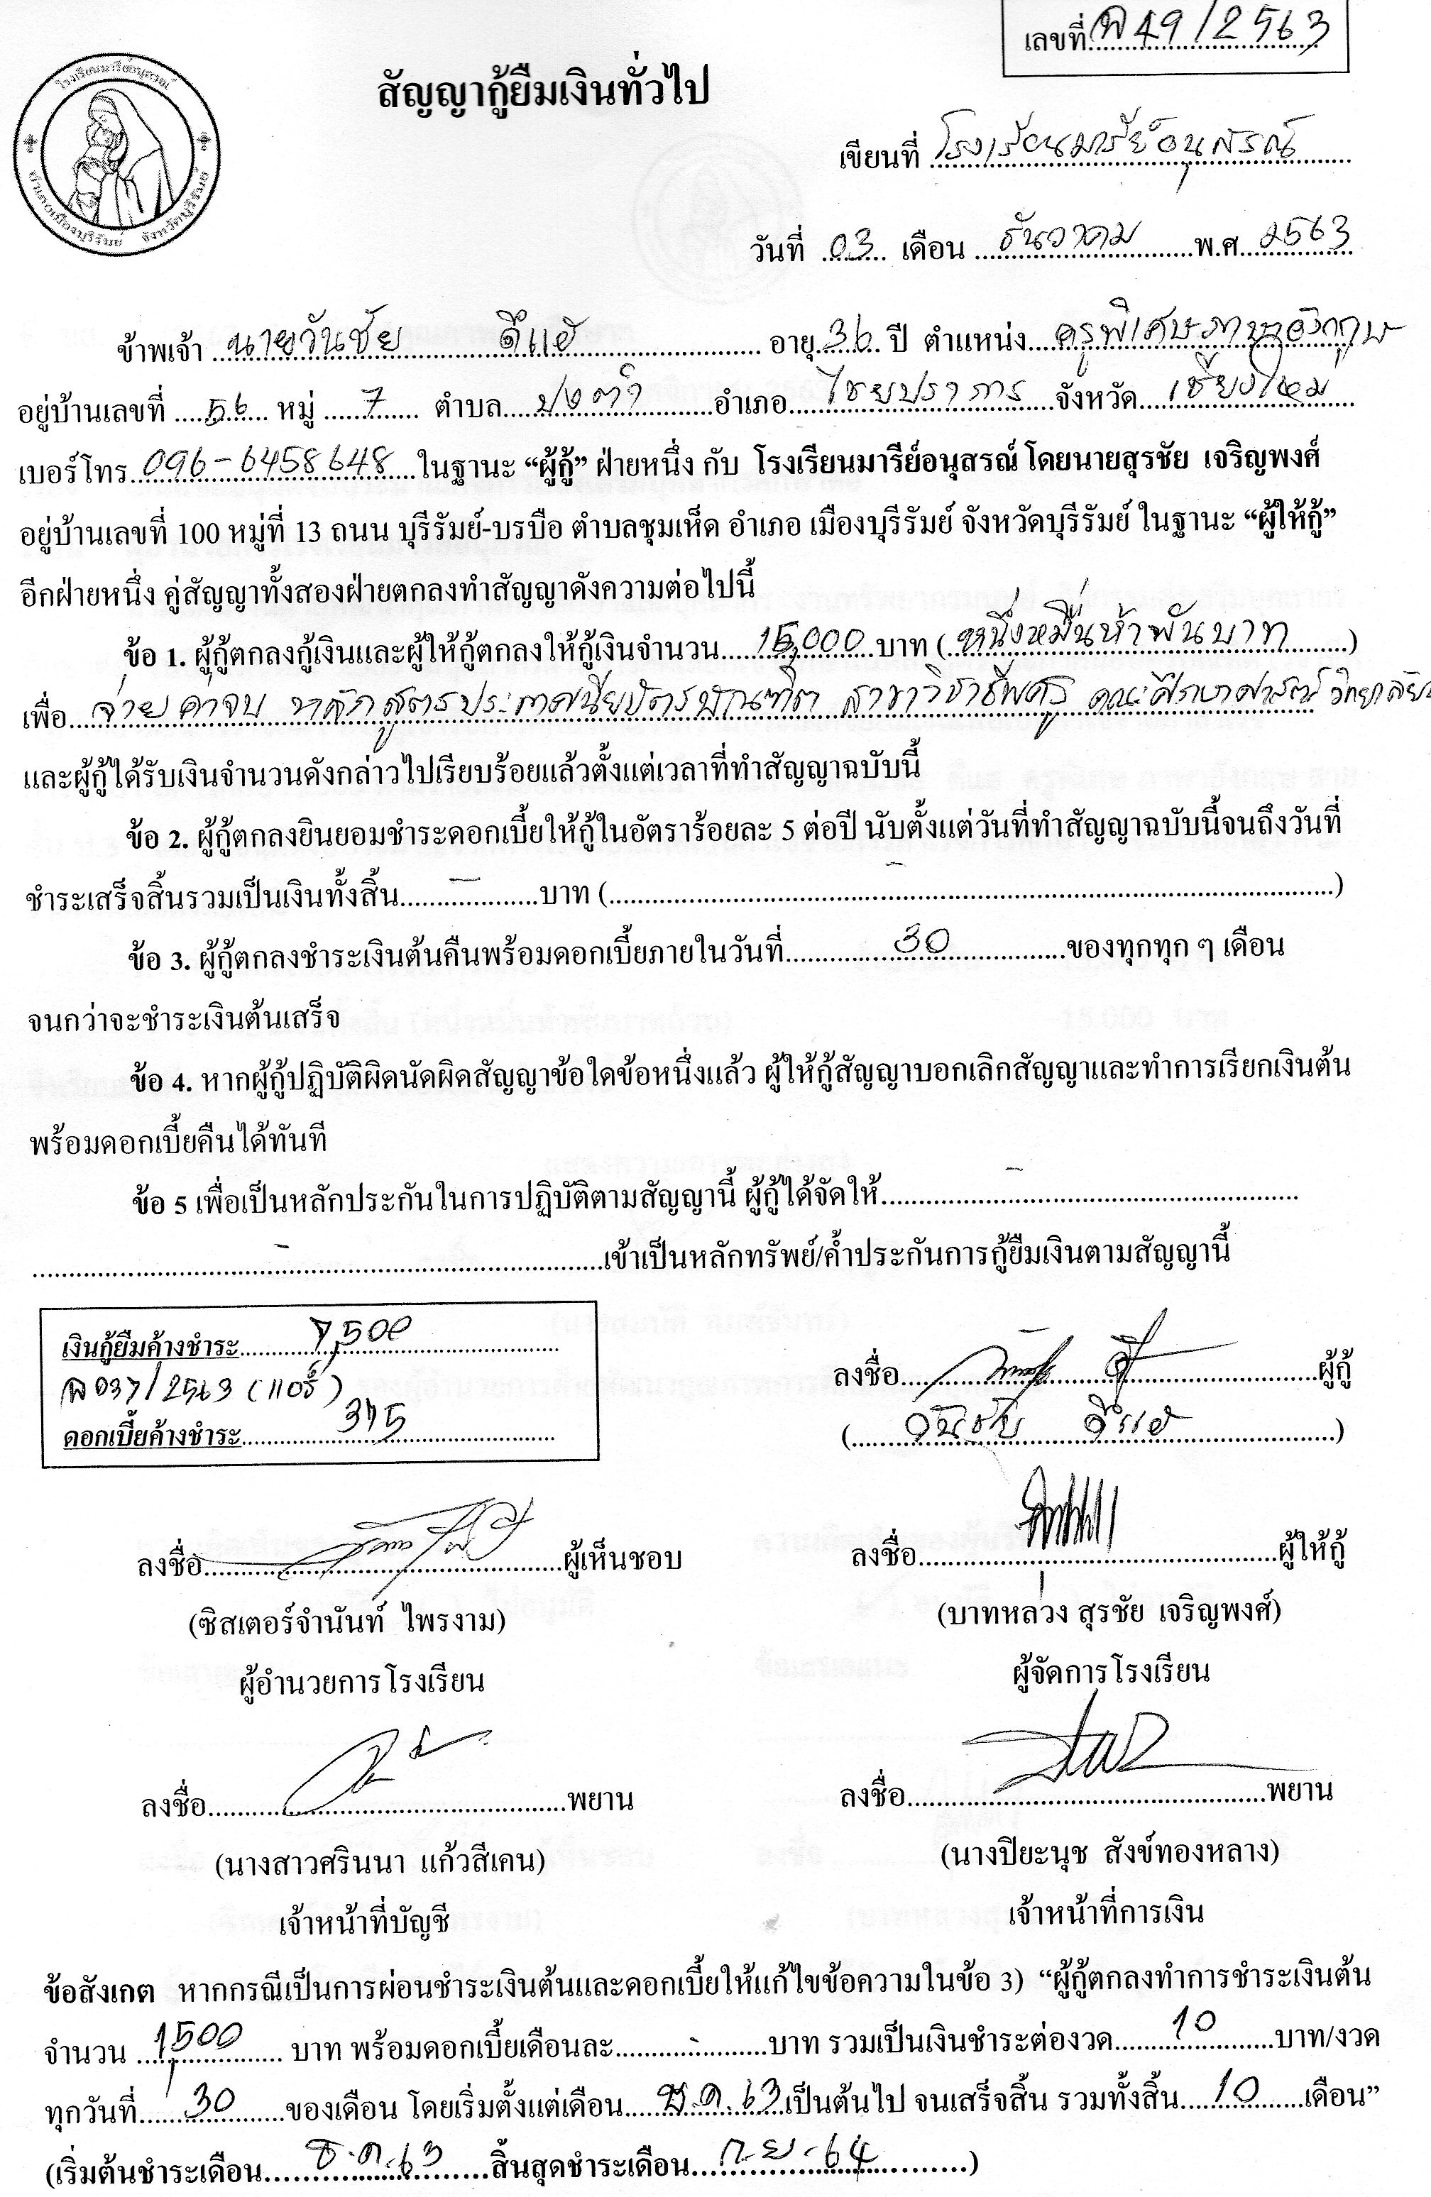 เลขที่ ด 49/2563
โรงเรียนมารีย์อนุสรณ์
อำเภอเมืองบุรีรัมย์ จังหวัดบุรีรัมย์
สัญญากู้ยืมเงินทั่วไป
เขียนที่ โรงเรียนมารีย์อนุสรณ์
วันที่ 03 เดือน ธันวาคม พ.ศ. 2563
ข้าพเจ้า นายวันชัย ดีแฮ อายุ 36 ปี ตำแหน่ง ครูพิเศษภาษาอังกฤษ
อยู่บ้านเลขที่ 56 หมู่ 7 ตำบล ปงตำ อำเภอ ไชยปราการ จังหวัด เชียงใหม่
เบอร์โทร. 096-6458648 ในฐานะ “ผู้กู้” ฝ่ายหนึ่ง กับ โรงเรียนมารีย์อนุสรณ์ โดยนายสุรชัย เจริญพงศ์
อยู่บ้านเลขที่ 100 หมู่ที่ 13 ถนน บุรีรัมย์-บรบือ ตำบลชุมเห็ด อำเภอ เมืองบุรีรัมย์ จังหวัดบุรีรัมย์ ในฐานะ “ผู้ให้กู้”
อีกฝ่ายหนึ่ง คู่สัญญาทั้งสองฝ่ายตกลงทำสัญญาดังความต่อไปนี้
ข้อ 1. ผู้กู้ตกลงกู้เงินและผู้ให้กู้ตกลงให้กู้เงินจำนวน 15,000 บาท ( หนึ่งหมื่นห้าพันบาท )
เพื่อ จ่ายค่าจบ หลักสูตรประกาศนียบัตรบัณฑิต สาขาวิชาชีพครู คณะศึกษาศาสตร์ วิทยาลัย
และผู้กู้ได้รับเงินจำนวนดังกล่าวไปเรียบร้อยแล้วตั้งแต่เวลาที่ทำสัญญาฉบับนี้
ข้อ 2. ผู้กู้ตกลงยินยอมชำระดอกเบี้ยให้กู้ในอัตราร้อยละ 5 ต่อปี นับตั้งแต่วันที่ทำสัญญาฉบับนี้จนถึงวันที่
ชำระเสร็จสิ้นรวมเป็นเงินทั้งสิ้น - บาท ( - )
ข้อ 3. ผู้กู้ตกลงชำระเงินต้นคืนพร้อมดอกเบี้ยภายในวันที่ 30 ของทุกทุก ๆ เดือน
จนกว่าจะชำระเงินต้นเสร็จ
ข้อ 4. หากผู้กู้ปฏิบัติผิดนัดผิดสัญญาข้อใดข้อหนึ่งแล้ว ผู้ให้กู้สัญญาบอกเลิกสัญญาและทำการเรียกเงินต้น
พร้อมดอกเบี้ยคืนได้ทันที
ข้อ 5 เพื่อเป็นหลักประกันในการปฏิบัติตามสัญญานี้ ผู้กู้ได้จัดให้ -
- เข้าเป็นหลักทรัพย์/ค้ำประกันการกู้ยืมเงินตามสัญญานี้
เงินกู้ยืมค้างชำระ 7,500
ด 037/2563 (แอร์)
ดอกเบี้ยค้างชำระ 375
ลงชื่อ ผู้กู้
( วันชัย ดีแฮ )
ลงชื่อ ผู้เห็นชอบ
(ซิสเตอร์จำนันท์ ไพรงาม)
ผู้อำนวยการโรงเรียน
ลงชื่อ ผู้ให้กู้
(บาทหลวง สุรชัย เจริญพงศ์)
ผู้จัดการโรงเรียน
ลงชื่อ พยาน
(นางสาวศรินนา แก้วสีเคน)
เจ้าหน้าที่บัญชี
ลงชื่อ พยาน
(นางปิยะนุช สังข์ทองหลาง)
เจ้าหน้าที่การเงิน
ข้อสังเกต หากกรณีเป็นการผ่อนชำระเงินต้นและดอกเบี้ยให้แก้ไขข้อความในข้อ 3) “ผู้กู้ตกลงทำการชำระเงินต้น
จำนวน 1,500 บาท พร้อมดอกเบี้ยเดือนละ - บาท รวมเป็นเงินชำระต่องวด 10 บาท/งวด
ทุกวันที่ 30 ของเดือน โดยเริ่มตั้งแต่เดือน ธ.ค.63 เป็นต้นไป จนเสร็จสิ้น รวมทั้งสิ้น 10 เดือน”
(เริ่มต้นชำระเดือน ธ.ค.63 สิ้นสุดชำระเดือน ก.ย.64 )